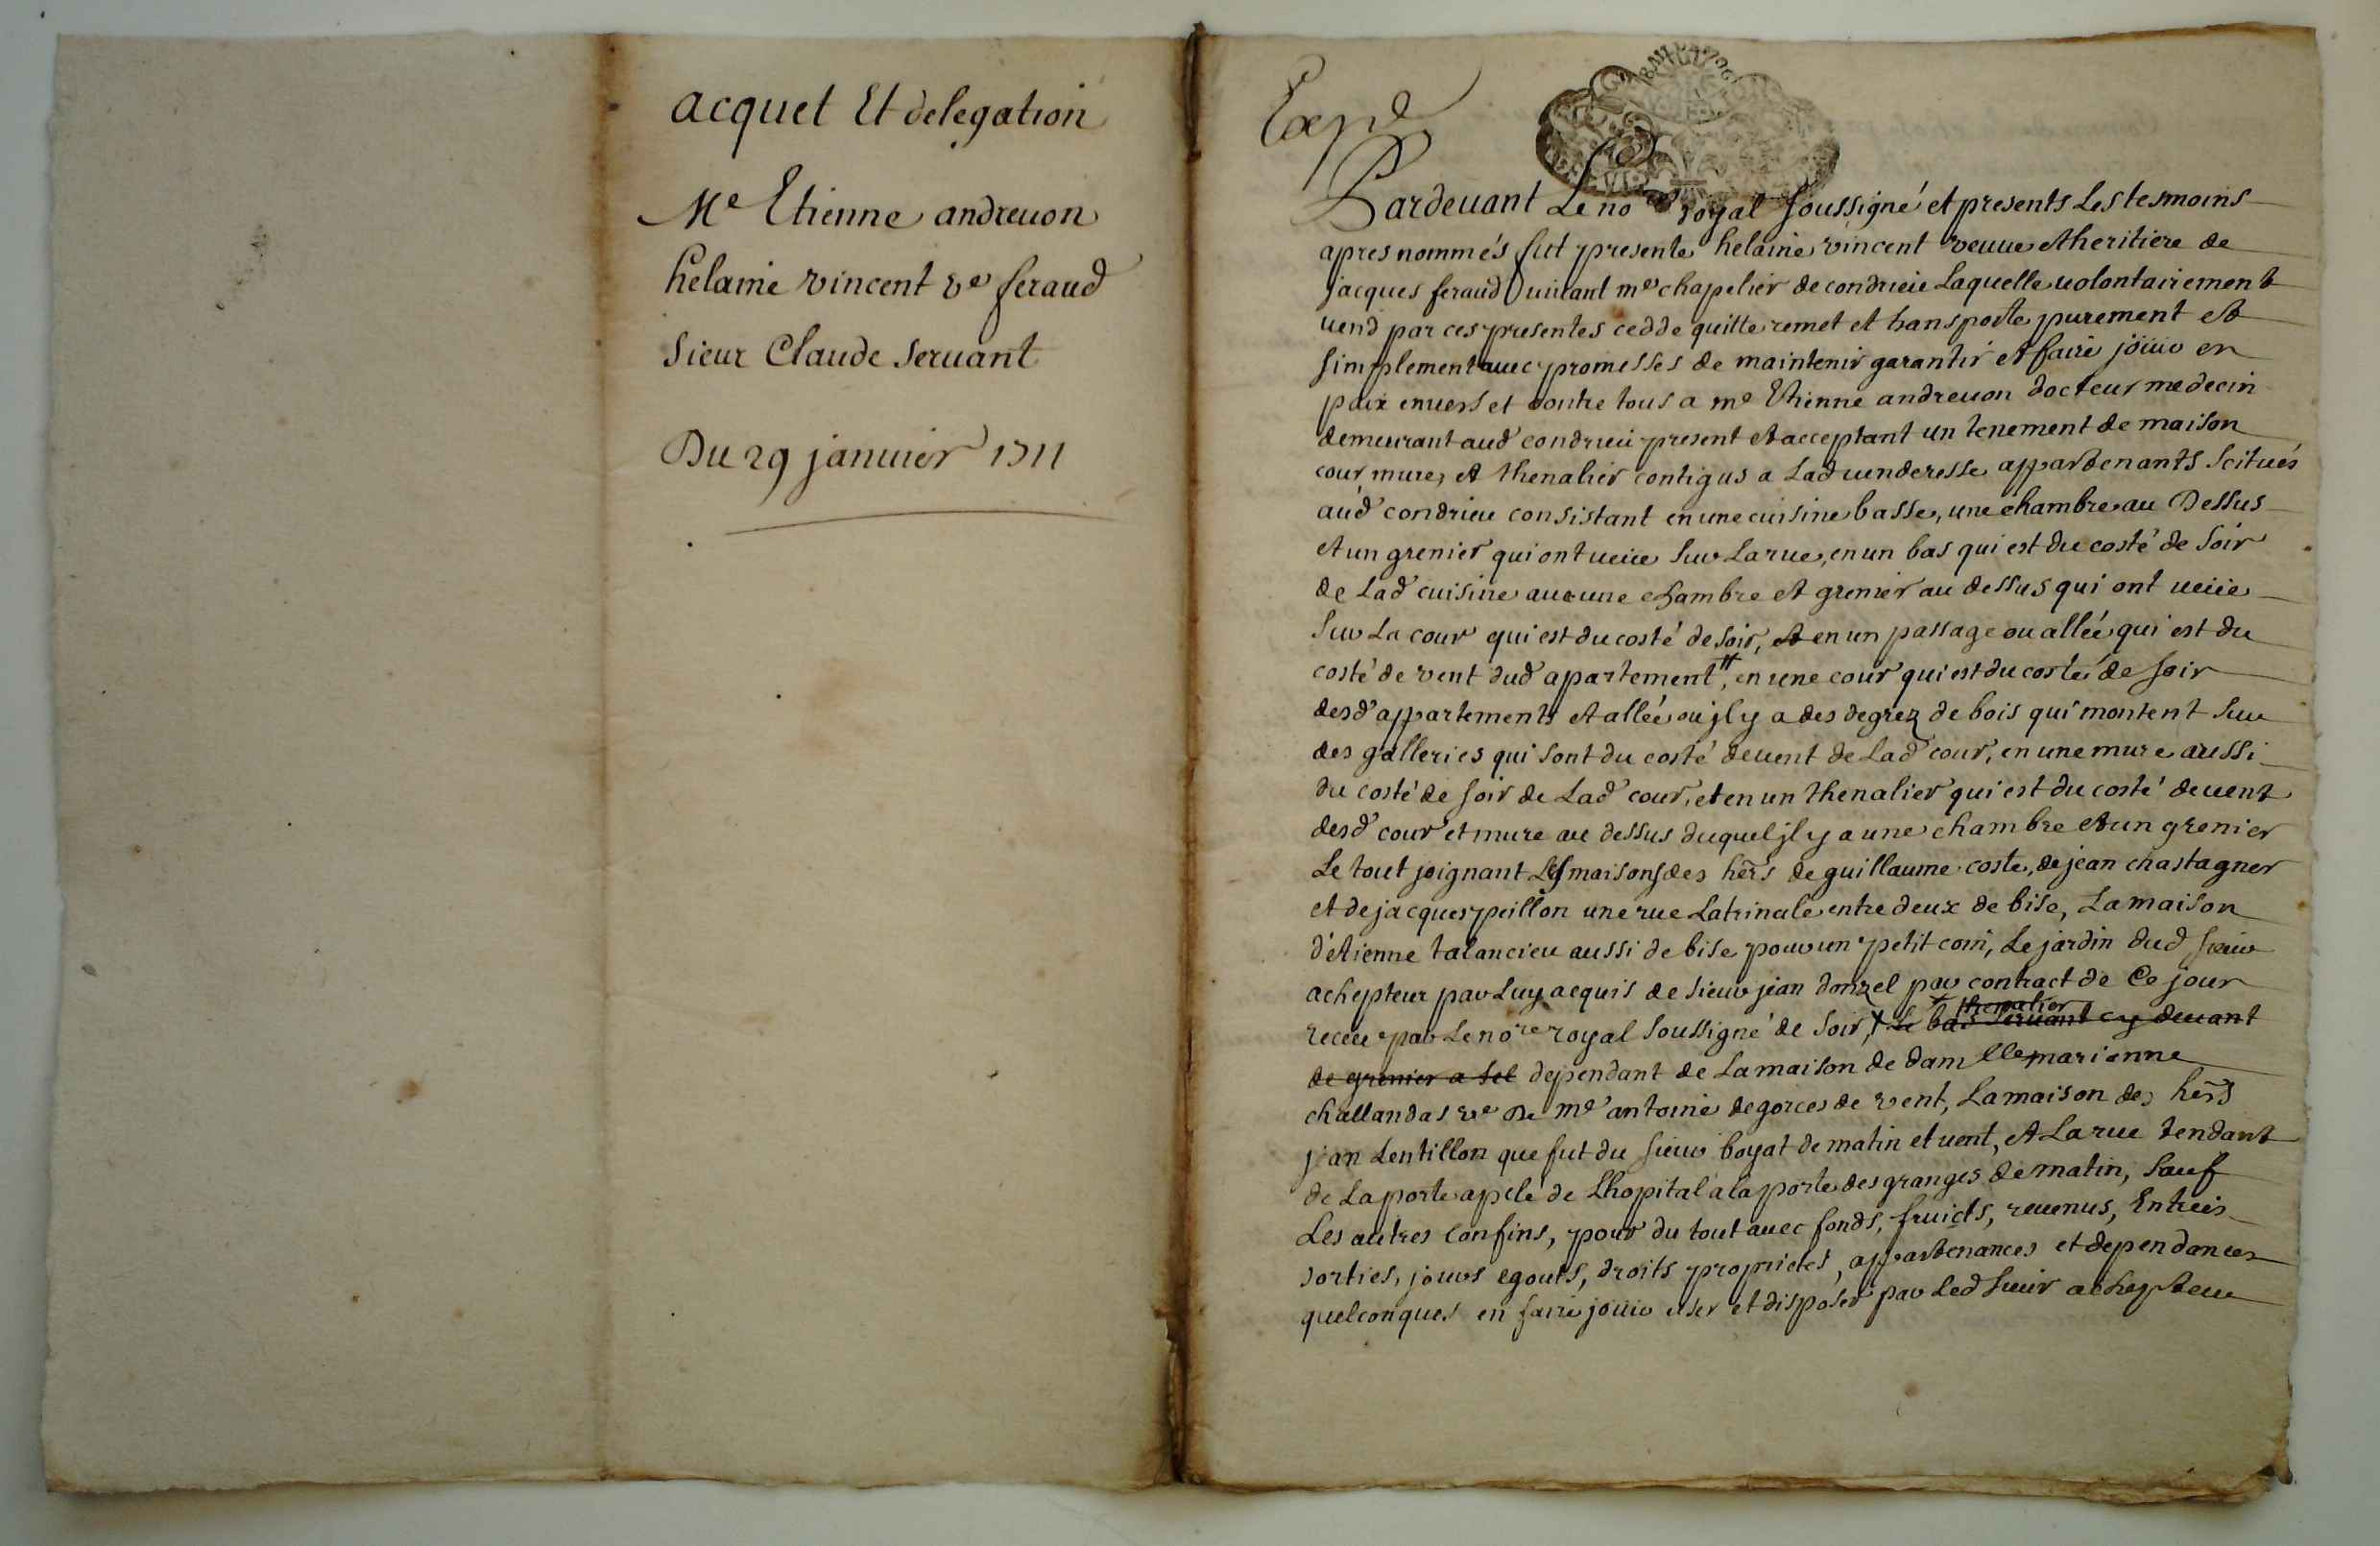 acquet Et delegation
Me Etienne andreuon
helaine vincent ve feraud
Sieur Claude Seruant
Du 29 januier 1711
Expd
Pardeuant Le nore royal soussigné et presents Les tesmoins
apres nommés fut presente helaine vincent veuue et heritiere de
jacques feraud viuant me chapelier de condrieu Laquelle uolontairement
uend par ces presentes cedde quitte remet et transporte purement et
simplement auec promesses de maintenir garantir et faire joüir en
paix enuers et contre tous a me Etienne andreuon docteur medecin
demeurant aud condrieu present et acceptant un tenement de maison
cour, mure, et thenalier contigus a Lad uenderesse appartenants scitués
aud condrieu consistant en une cuisine basse, une chambre au Dessus
et un grenier qui ont ueüe sur La rue, en un bas qui est du costé de soir
de Lad cuisine auc une chambre et grenier au dessus qui ont ueüe
sur La cour qui est du costé de soir, et en un passage ou allée qui est du
costé de vent dud apartement, en une cour qui est du costé de soir
desd appartements et allée ou jl y a des degrez de bois qui montent sur
des galleries qui sont du costé de uent de Lad cour, en une mure aussi
du costé de soir de Lad cour, et en un thenalier qui est du costé de uent
desd cour et mure au dessus duquel jl y a une chambre et un grenier
Le tout joignant Les maisons des hers de guillaume coste, de jean chastagner
et de jacques peillon une rue Latrinale entre deux de bise, La maison
d'etienne talancieu aussi de bise pour un petit coin, Le jardin dud sieur
achepteur par Luy acquis de sieur jean donzel par contract de Ce jour
thenalier
receu par Le nore royal soussigné de soir, Le bas seruant cy deuant
de grenier a sel dependant de La maison de damlle marianne
challandas ve De me antoine degorces de vent, La maison des hers
jean Lentillon que fut du sieur boyat de matin et uent, et La rue tendant
de La porte apelé de Lhopital a la porte des granges de matin, sauf
Les autres confins, pour du tout auec fonds, fruicts, reuenus, Entrées
sorties, jours egouts, droits proprietés, appartenances et dependances
quelconques en faire joüir user et disposer par Led sieur achepteur